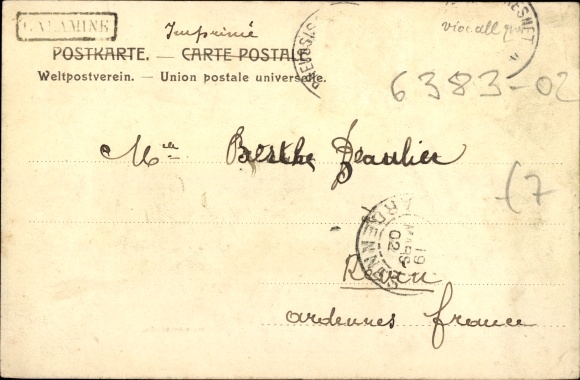 CALAMINE
Imprimé
POSTKARTE. — CARTE POSTALE
Weltpostverein. — Union postale universelle.
6383-02
Mlle Berthe Beaulier
(7
ARDENNES
19
MARS
02
Revin
ardennes france